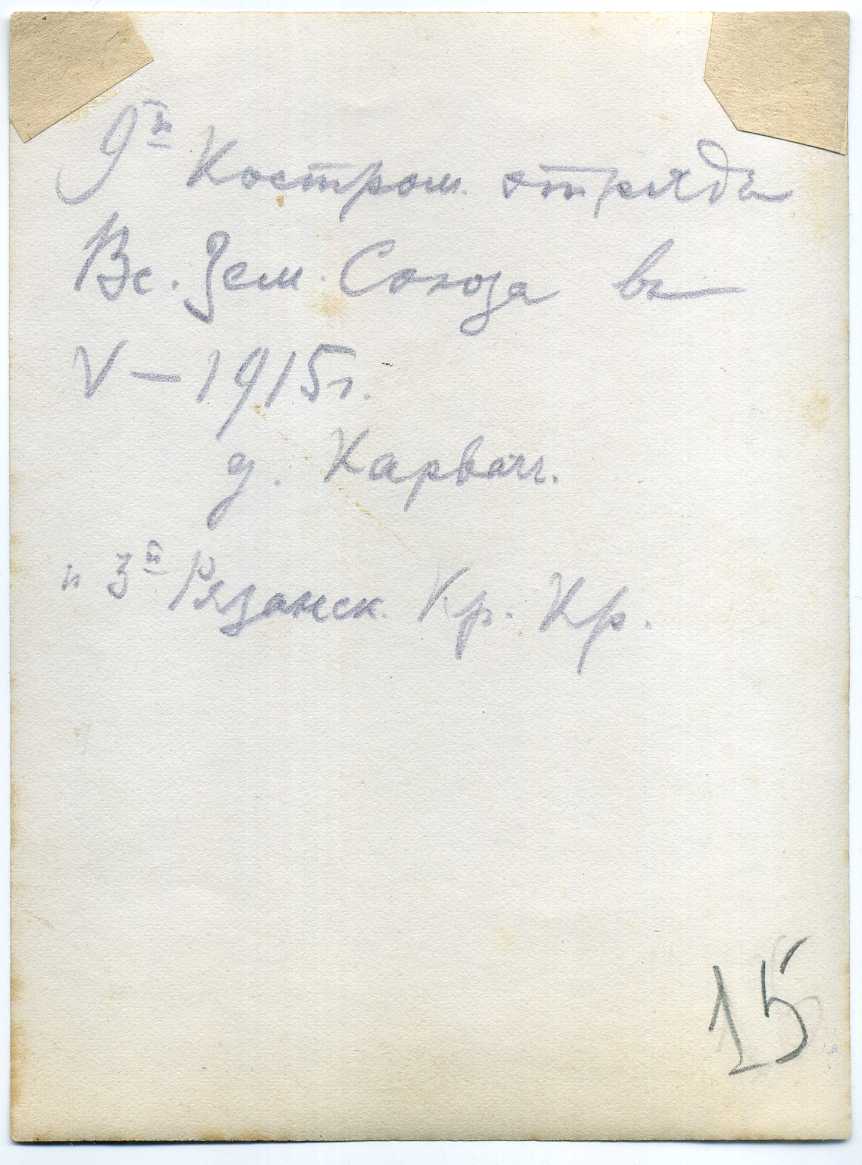 9й Костром. отрядъ
Вс. Зем. Союза въ
V – 1915 г.
д. Карвач.
и 3й Рязанск. Кр. Кр.
15